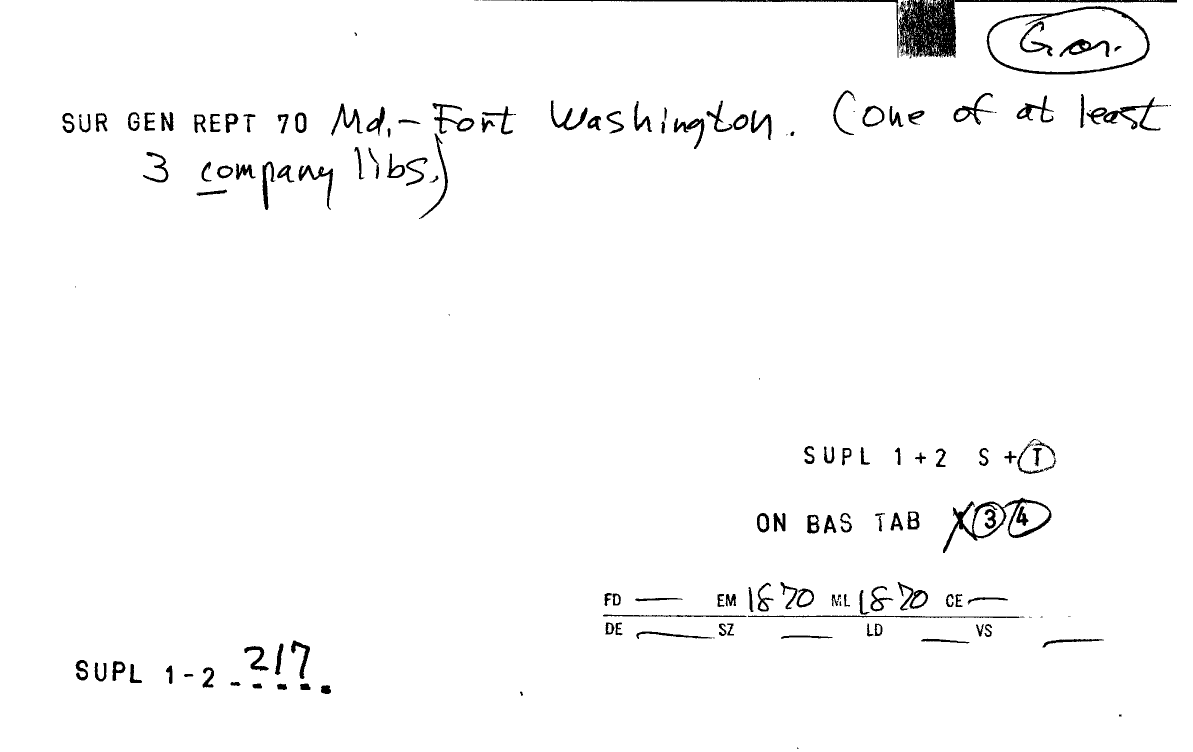 Gar.
SUR GEN REPT 70 Md.- Fort Washington. (one of at least
3 company libs.)
SUPL 1+2 S+T
ON BAS TAB 3 4
FD — EM 1870 ML 1870 CE —
DE — SZ — LD — VS —
SUPL 1-2 217